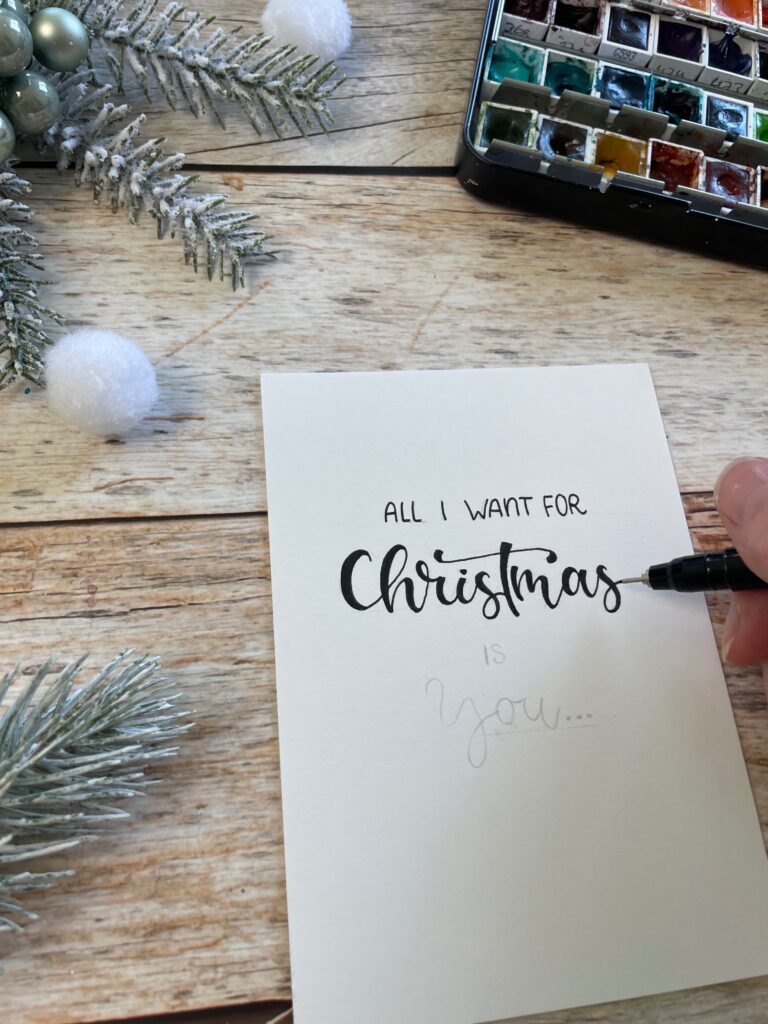 ALL I WANT FOR
Christmas
IS
You...